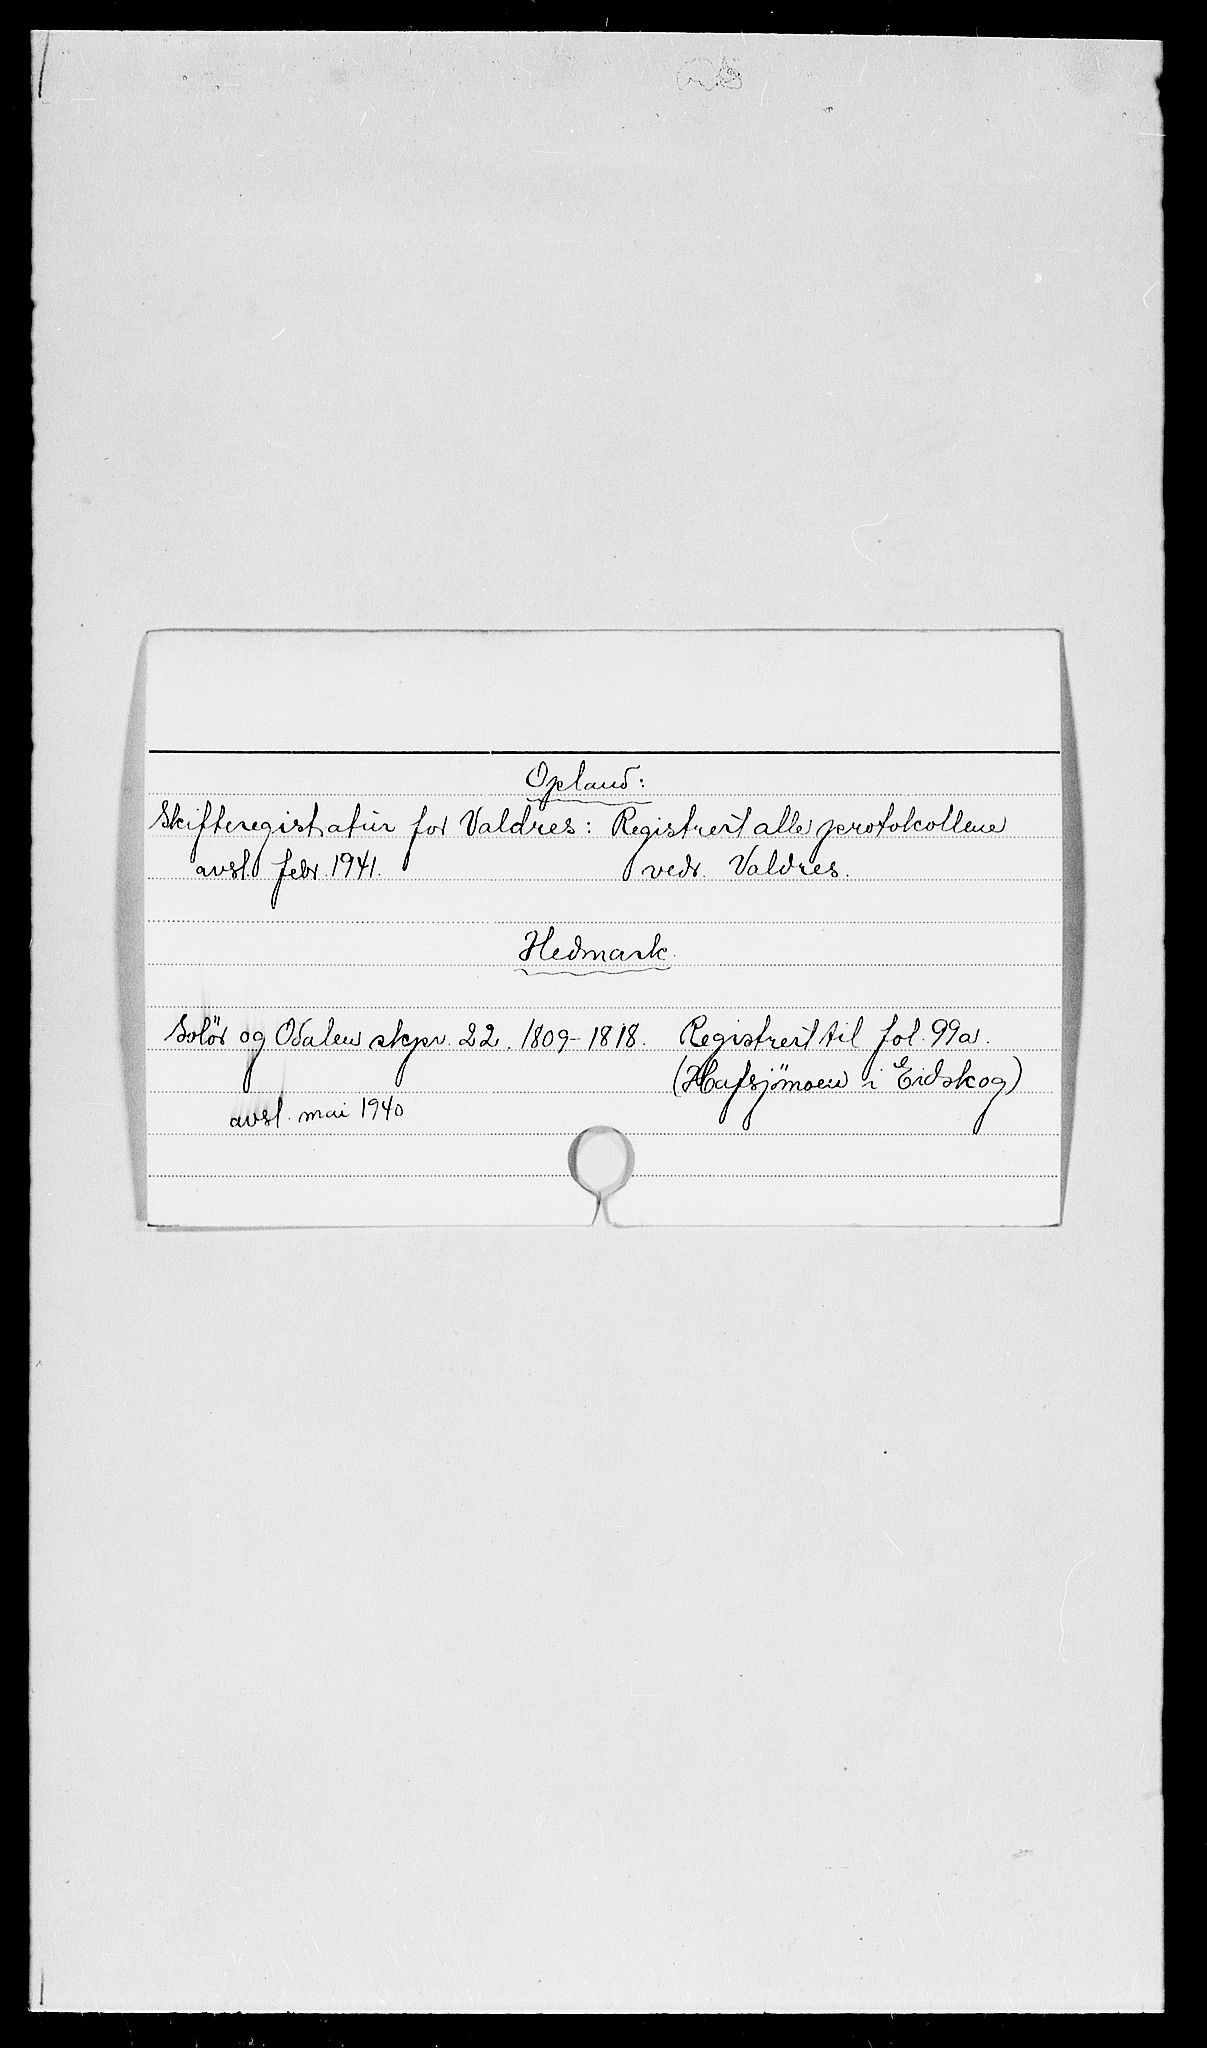 Opland:
Skifteregistratur for Valdres: Registrert alle protokollene
avsl. febr. 1941. vedr. Valdres.
Hedmark.
Solör og Odalen skpr. 22. 1809-1818. Registrert til fol. 99a.
(Hafsjömoen i Eidskog)
avsl. mai 1940